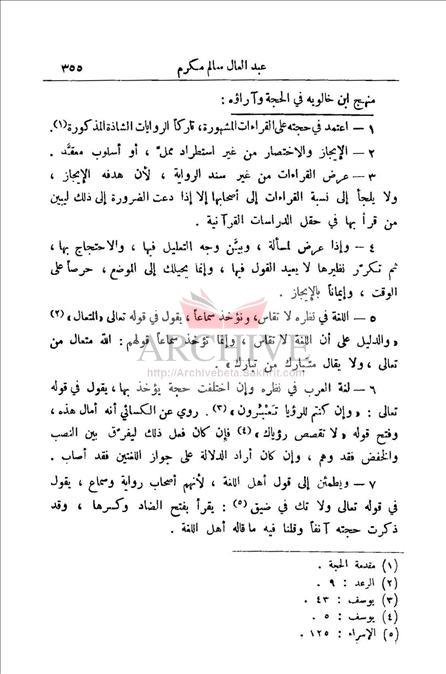 عبد العال سالم مكرم ٣٥٥
منهج ابن خالويه في الحجة وآراؤه :
١ – اعتمد في حجته على القراءات المشهورة، تاركاً الروايات الشاذة المذكورة (١).
٢ – الإيجاز والاختصار من غير استطراد مملّ ، أو أسلوب معقّد .
٣ – عرض القراءات من غير سند الرواية ، لأن هدفه الإيجاز ،
ولا يلجأ إلى نسبة القراءات إلى أصحابها إلا إذا دعت الضرورة إلى ذلك ليبين
من قرأ بها في حقل الدراسات القرآنية .
٤ – وإذا عرض لمسألة ، وبيّن وجه التعليل فيها ، والاحتجاج بها ،
ثم تكرّر نظيرها لا يعيد القول فيها ، وإنما يحيلك إلى الموضع ، حرصاً على
الوقت ، وإيماناً بالإيجاز .
٥ – اللغة في نظره لا تقاس، وتؤخذ سماعاً ، يقول في قوله تعالى «المتعال» (٢)
«والدليل على أن اللغة لا تقاس ، وإنما تؤخذ سماعاً قولهم : الله متعال من
تعالى ، ولا يقال متبارك من تبارك» .
ARCHIVE
http://Archivebeta.Sakhrit.com
٦ – لغة العرب في نظره وإن اختلفت حجة يؤخذ بها ، يقول في قوله
تعالى : «وإن كنتم للرؤيا تَعْبُرون» (٣) . روي عن الكسائي أنه أمال هذه ،
وفتح قوله «لا تقصص رؤياك» (٤) فإن كان فعل ذلك ليفرّق بين النصب
والخفض فقد وهم ، وإن كان أراد الدلالة على جواز اللغتين فقد أصاب .
٧ – ويطمئن إلى قول أهل اللغة ، لأنهم أصحاب رواية وسماع ، يقول
في قوله تعالى ولا تك في ضيق (٥) : يقرأ بفتح الضاد وكسرها ، وقد
ذكرت حجته آنفاً وقلنا فيه ما قاله أهل اللغة .
(١) مقدمة الحجة .
(٢) الرعد : ٩ .
(٣) يوسف : ٤٣ .
(٤) يوسف : ٥ .
(٥) الإسراء : ١٢٥ .